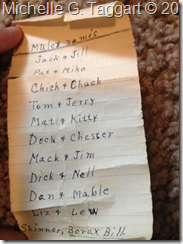 Michelle G. Taggart © 20
Mules Names
Jack & Jill
Pat & Mike
Chick & Chuck
Tom & Jerry
Mat & Kitty
Dock & Chesser
Mack & Jim
Dick & Nell
Dan & Mable
Liz & Lew
Skinner, Borax Bill.